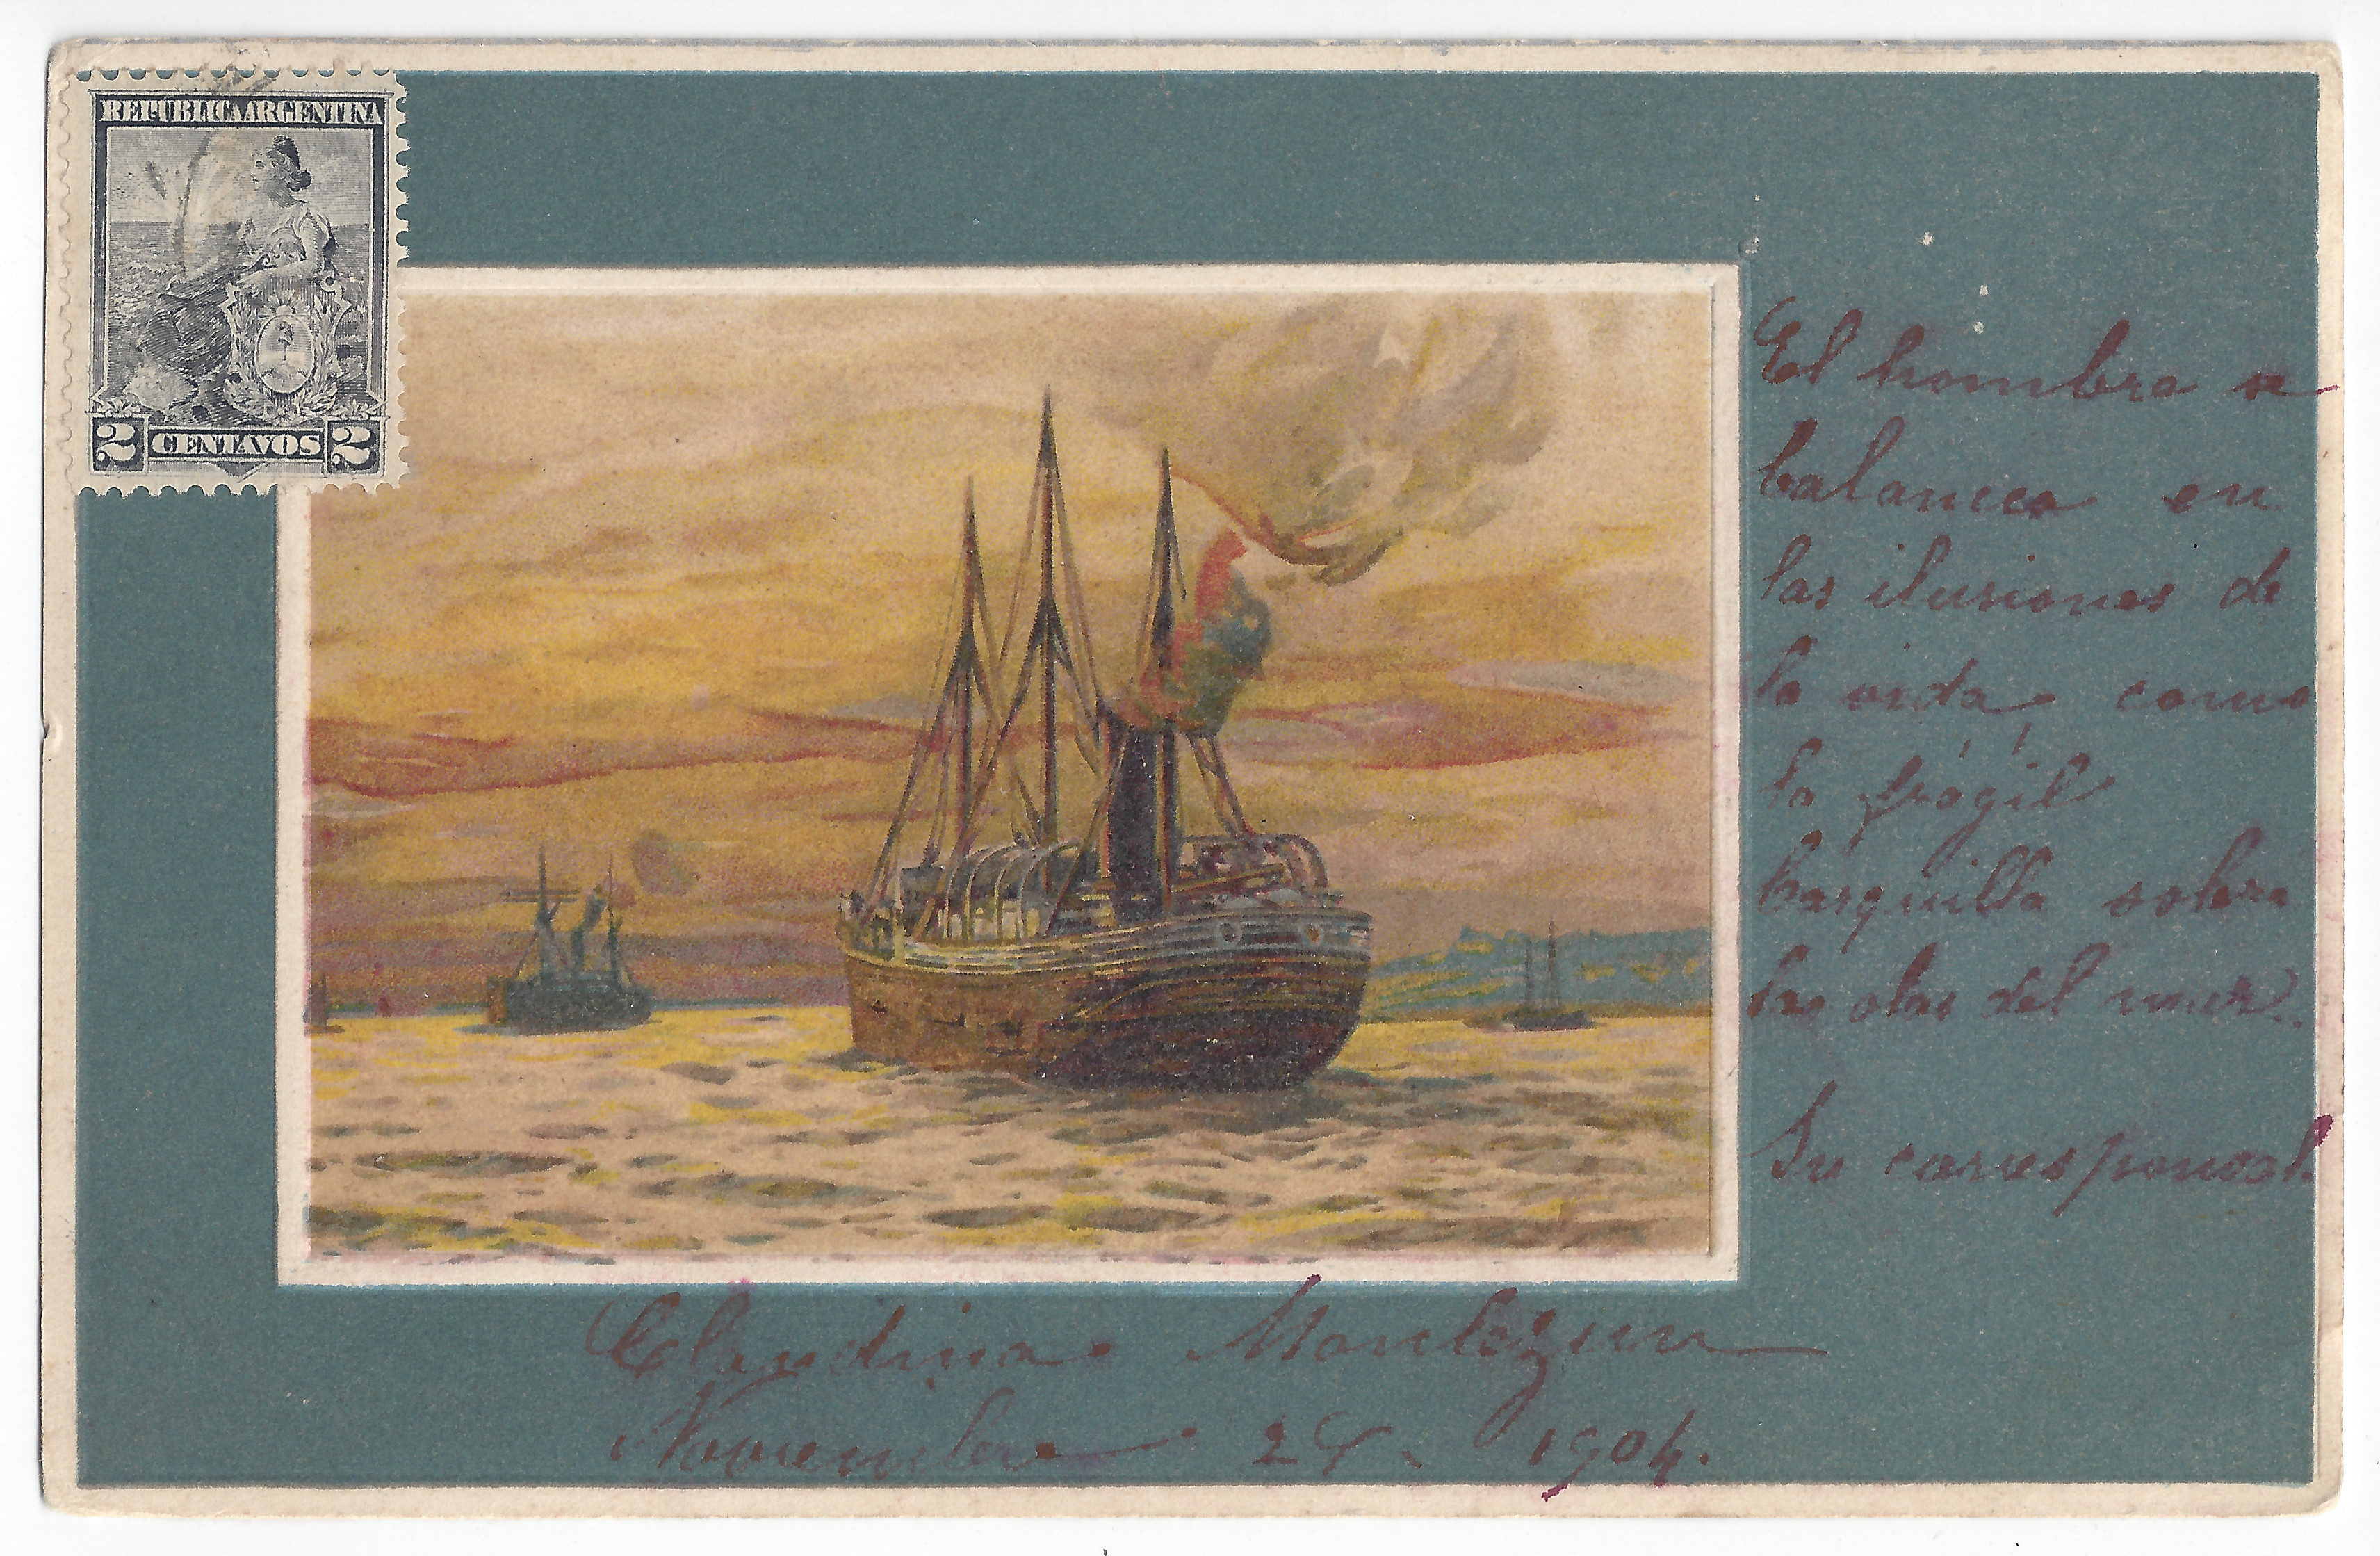 REPÚBLICA ARGENTINA
2 CENTAVOS 2
El hombre se
balancea en
las ilusiones de
la vida, como
la frágil
barquilla sobre
las olas del mar.
Su corresponsal.
Claudina Montezun
Noviembre 24 1904.